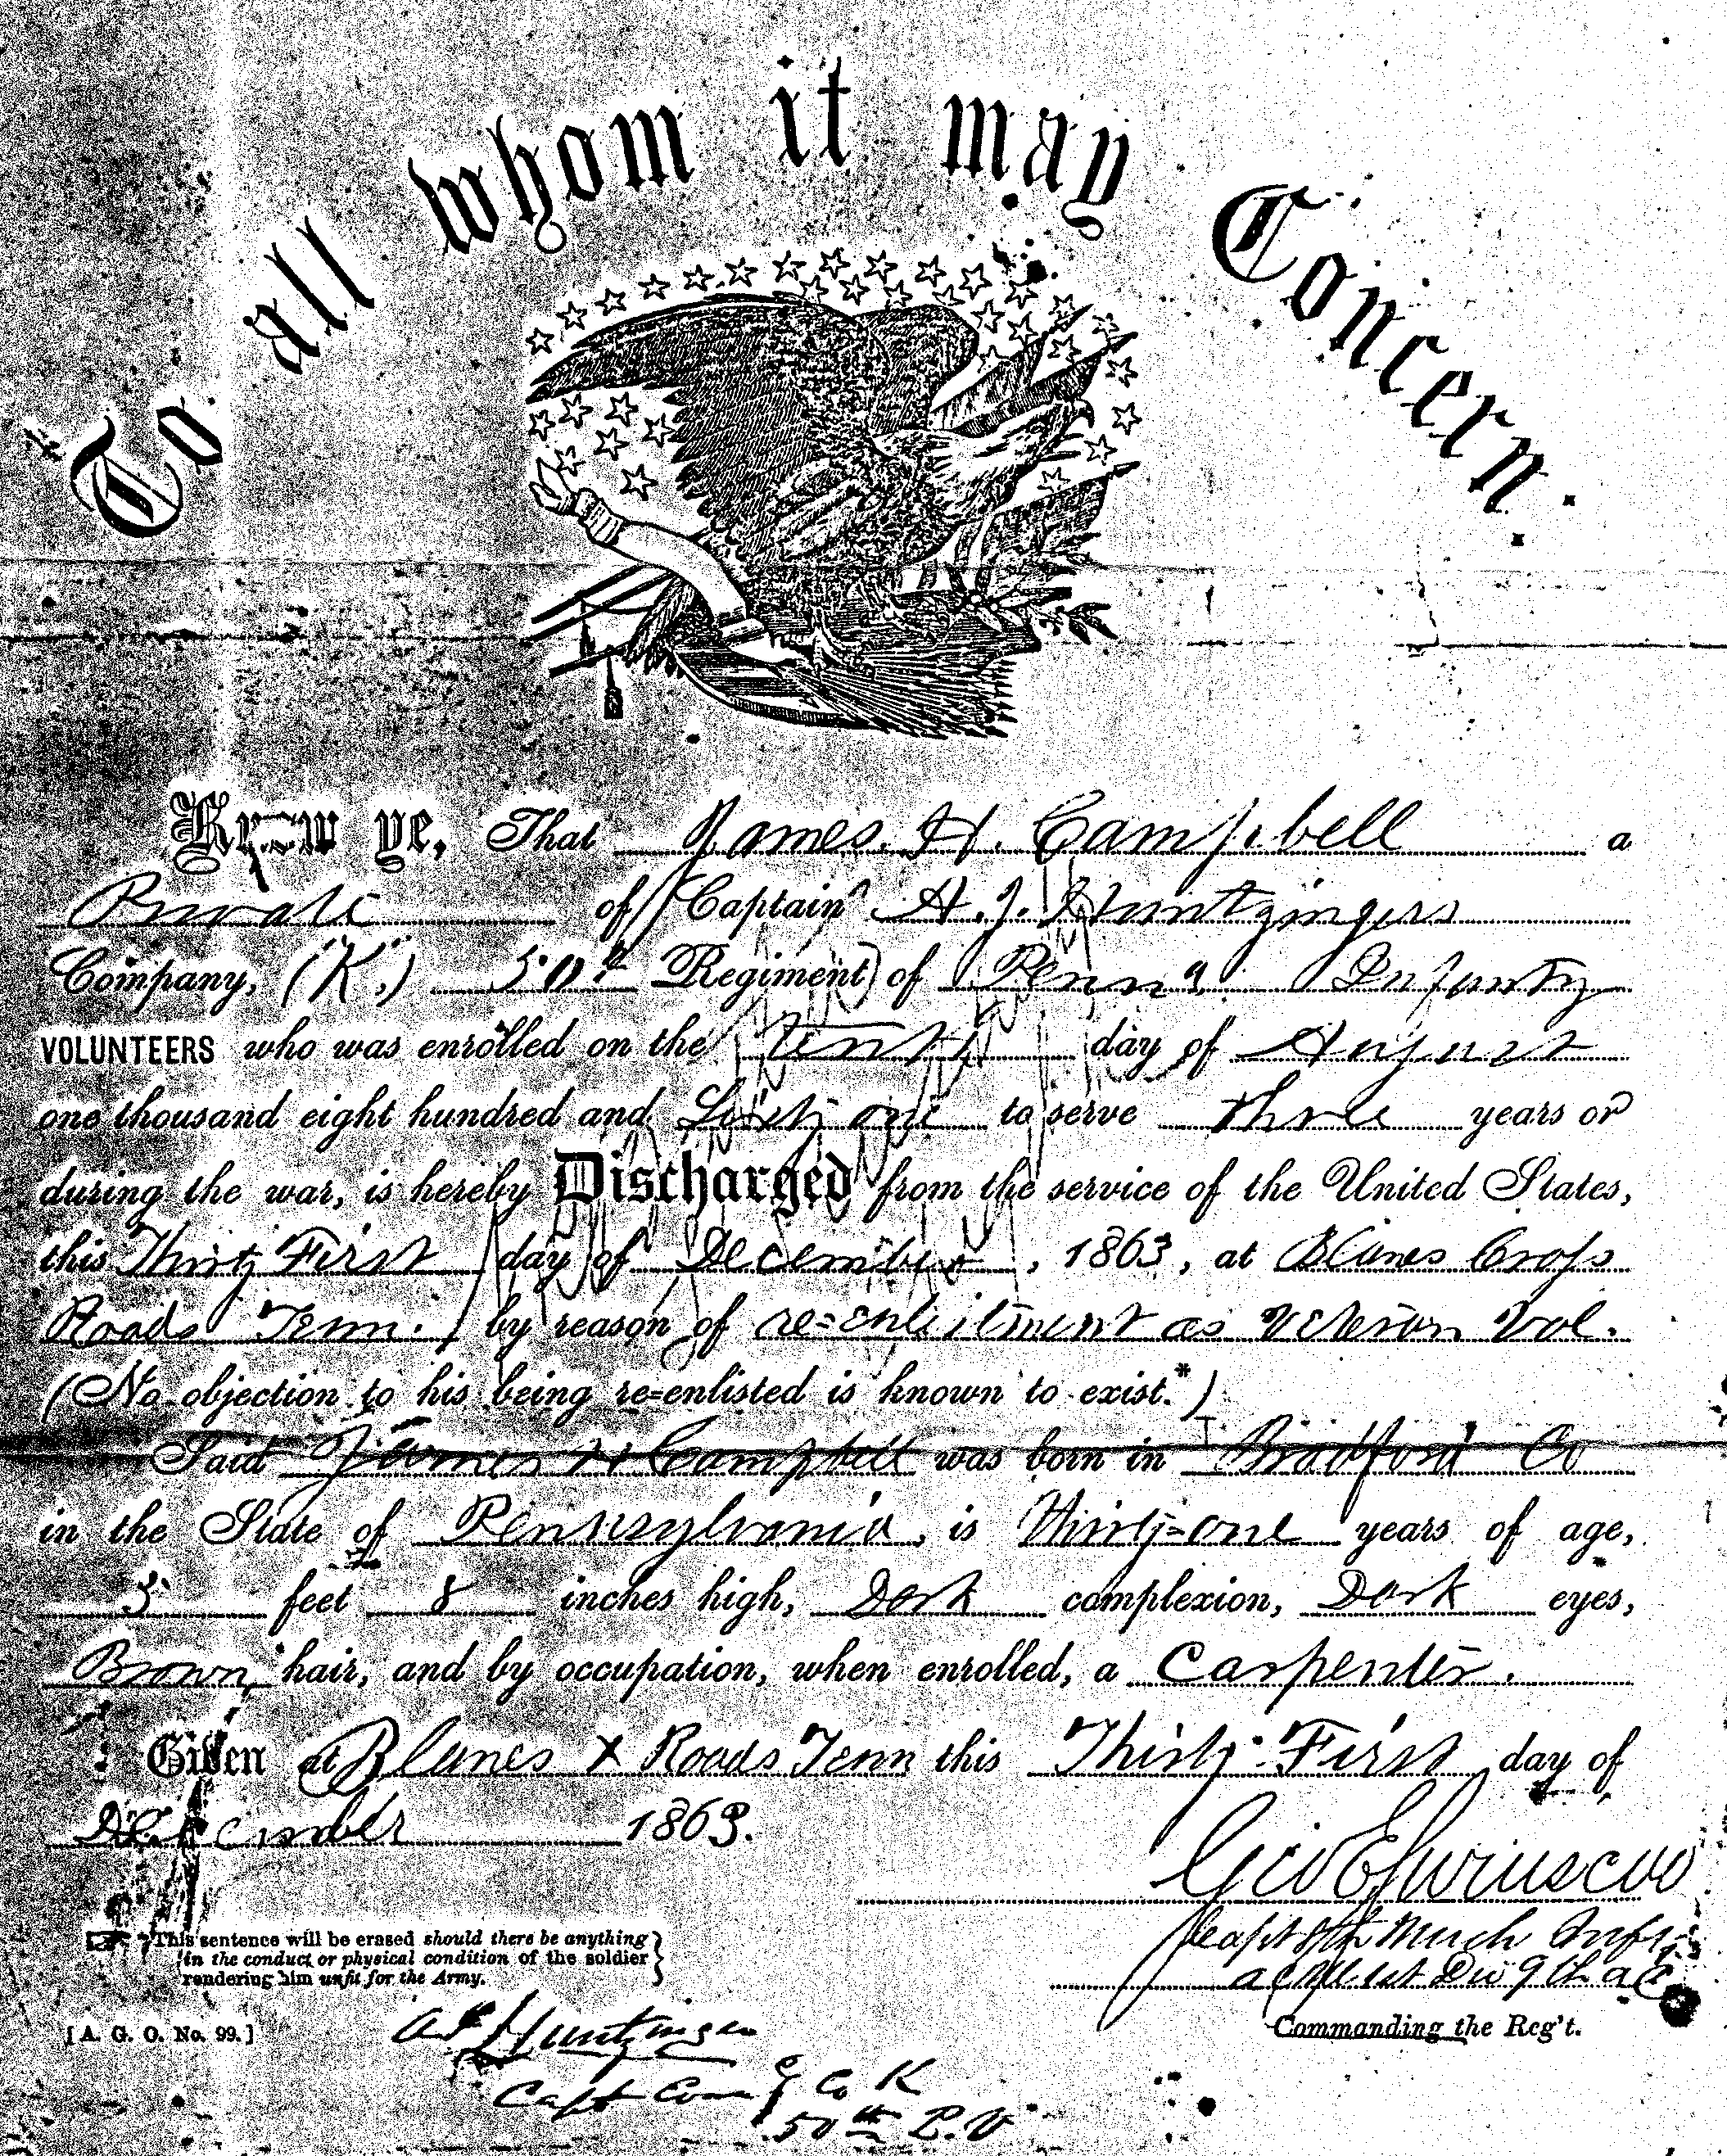 To all whom it may Concern.
Know ye, That James. H. Campbell a
Private of Captain A. J. Huntzingers
Company, ("K",) 50th Regiment of Penna. Infantry
VOLUNTEERS who was enrolled on the Tenth day of August
one thousand eight hundred and Sixty one to serve Three years or
during the war, is hereby Discharged from the service of the United States,
this Thirty First day of December, 1863, at Blanes Cross
Roads Tenn. by reason of re=enlistment as Veteran Vol.
(No objection to his being re=enlisted is known to exist.*)
Said James H Campbell was born in Bradford Co
in the State of Pennsylvania, is Thirty=one years of age,
5 feet 8 inches high, Dark complexion, Dark eyes,
Brown, hair, and by occupation, when enrolled, a Carpenter.
Given at Blanes X Roads Tenn this Thirty=First day of
December 1863.
Capt 8th Mich Infy
1st Div 9th a.c.
*This sentence will be erased should there be anything
in the conduct or physical condition of the soldier
rendering him unfit for the Army.
[A. G. O. No. 99.]
Commanding the Reg't.
Huntzinger
Capt Com'g Co K
50th P.V